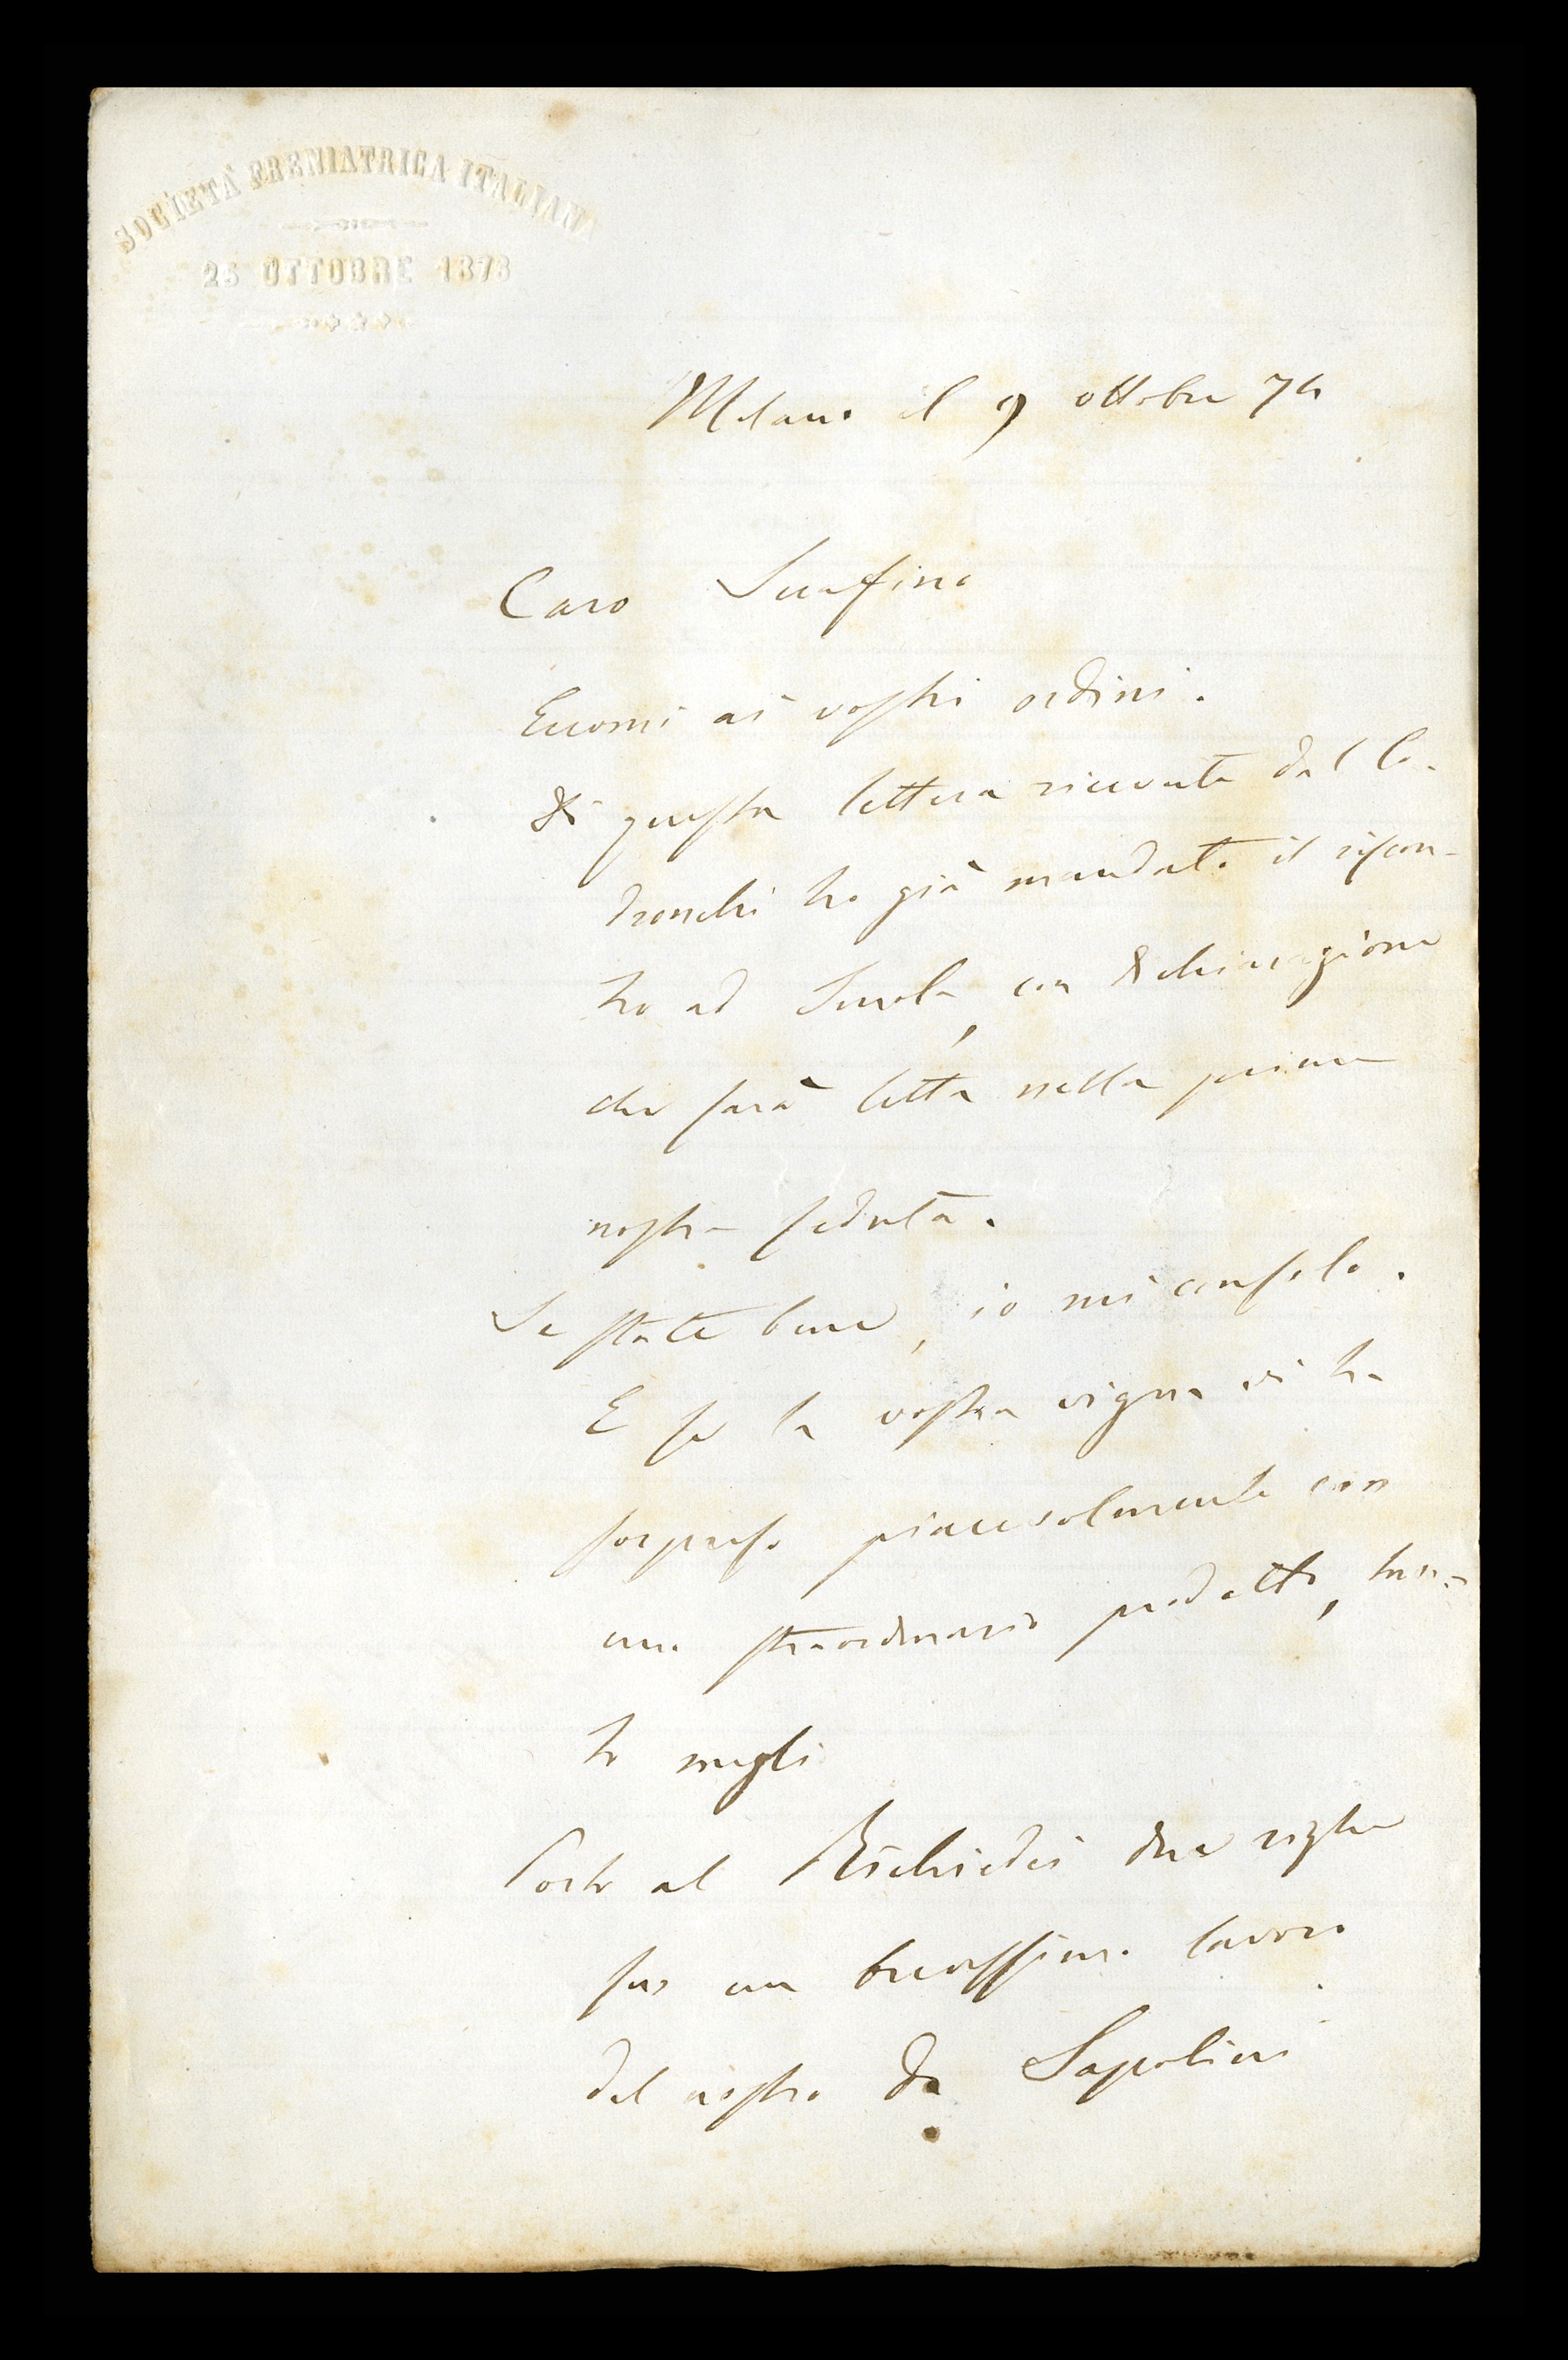 SOCIETÀ FRENIATRICA ITALIANA
25 OTTOBRE 1873
Milano il 9 ottobre 74
Caro Serafino
Eccomi ai vostri ordini.
Di questa lettera ricevuta dal Lo-
dronchi ho già mandato il riscon-
tro ad Imola, con dichiarazione
che sarà letta nella prima
nostra seduta.
Se state bene, io mi consolo.
E se la vostra vigna vi ha
sorpreso piacevolmente con
uno straordinario prodotto, tan-
to meglio
Porto al due righe
su un brevissimo lavoro
del nostro Dr Sapolini